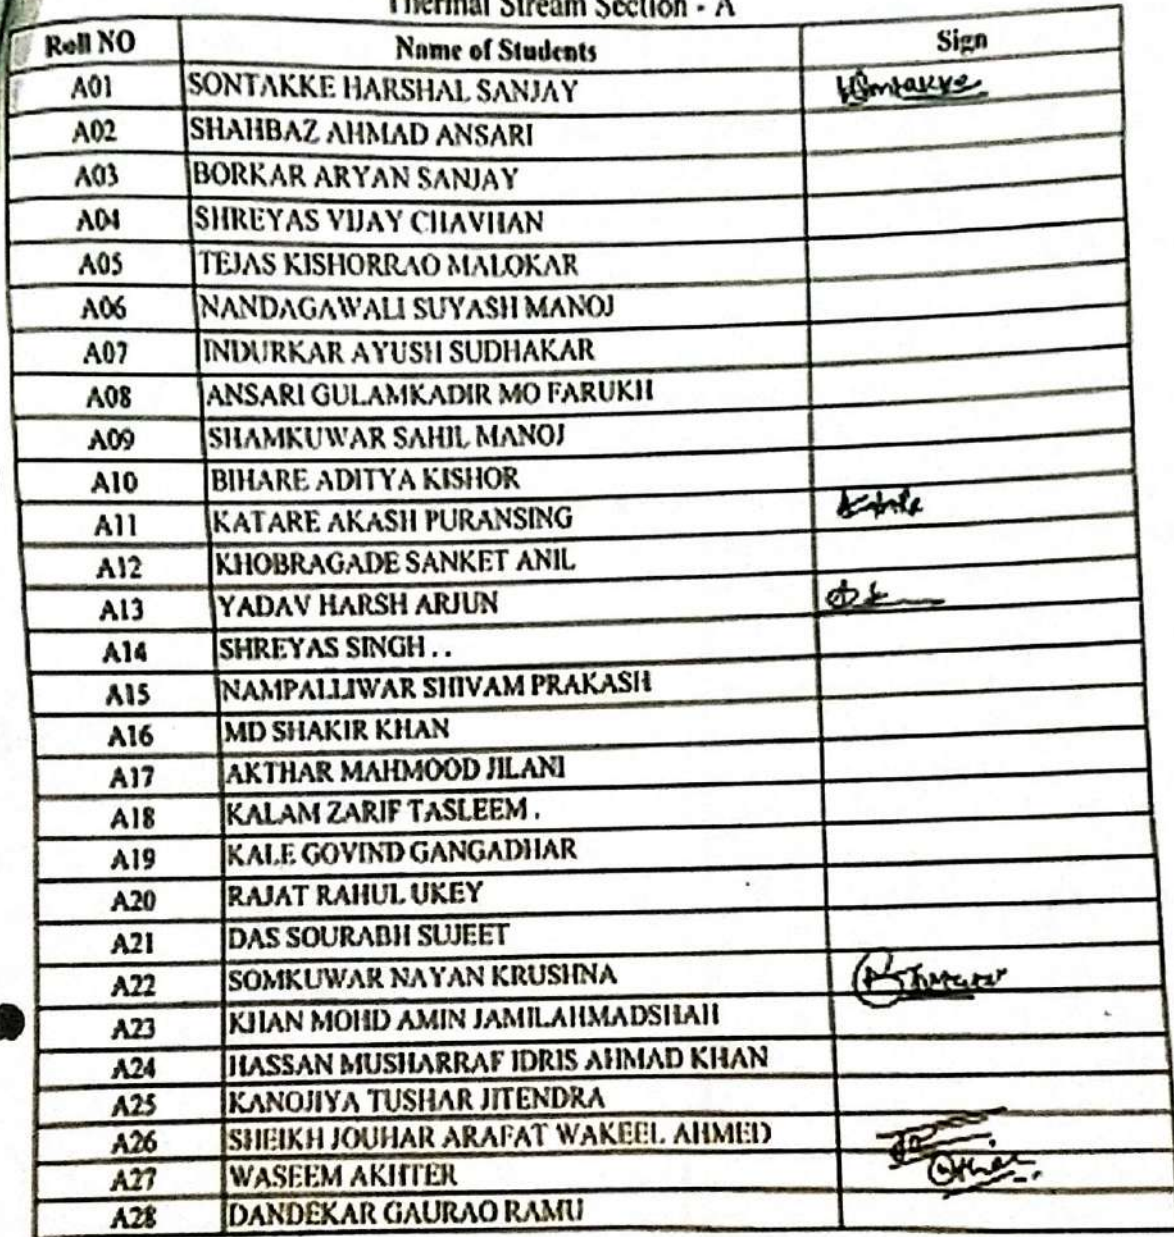 Thermal Stream Section - A
Roll NO Name of Students Sign
A01 SONTAKKE HARSHAL SANJAY
A02 SHAHBAZ AHMAD ANSARI
A03 BORKAR ARYAN SANJAY
A04 SHREYAS VIJAY CHAVHAN
A05 TEJAS KISHORRAO MALOKAR
A06 NANDAGAWALI SUYASH MANOJ
A07 INDURKAR AYUSH SUDHAKAR
A08 ANSARI GULAMKADIR MO FARUKH
A09 SHAMKUWAR SAHIL MANOJ
A10 BIHARE ADITYA KISHOR
A11 KATARE AKASH PURANSING
A12 KHOBRAGADE SANKET ANIL
A13 YADAV HARSH ARJUN
A14 SHREYAS SINGH . .
A15 NAMPALLIWAR SHIVAM PRAKASH
A16 MD SHAKIR KHAN
A17 AKTHAR MAHMOOD JILANI
A18 KALAM ZARIF TASLEEM .
A19 KALE GOVIND GANGADHAR
A20 RAJAT RAHUL UKEY
A21 DAS SOURABH SUJEET
A22 SOMKUWAR NAYAN KRUSHNA
A23 KHAN MOHD AMIN JAMILAHMADSHAH
A24 HASSAN MUSHARRAF IDRIS AHMAD KHAN
A25 KANOJIYA TUSHAR JITENDRA
A26 SHEIKH JOUHAR ARAFAT WAKEEL AHMED
A27 WASEEM AKHTER
A28 DANDEKAR GAURAO RAMU